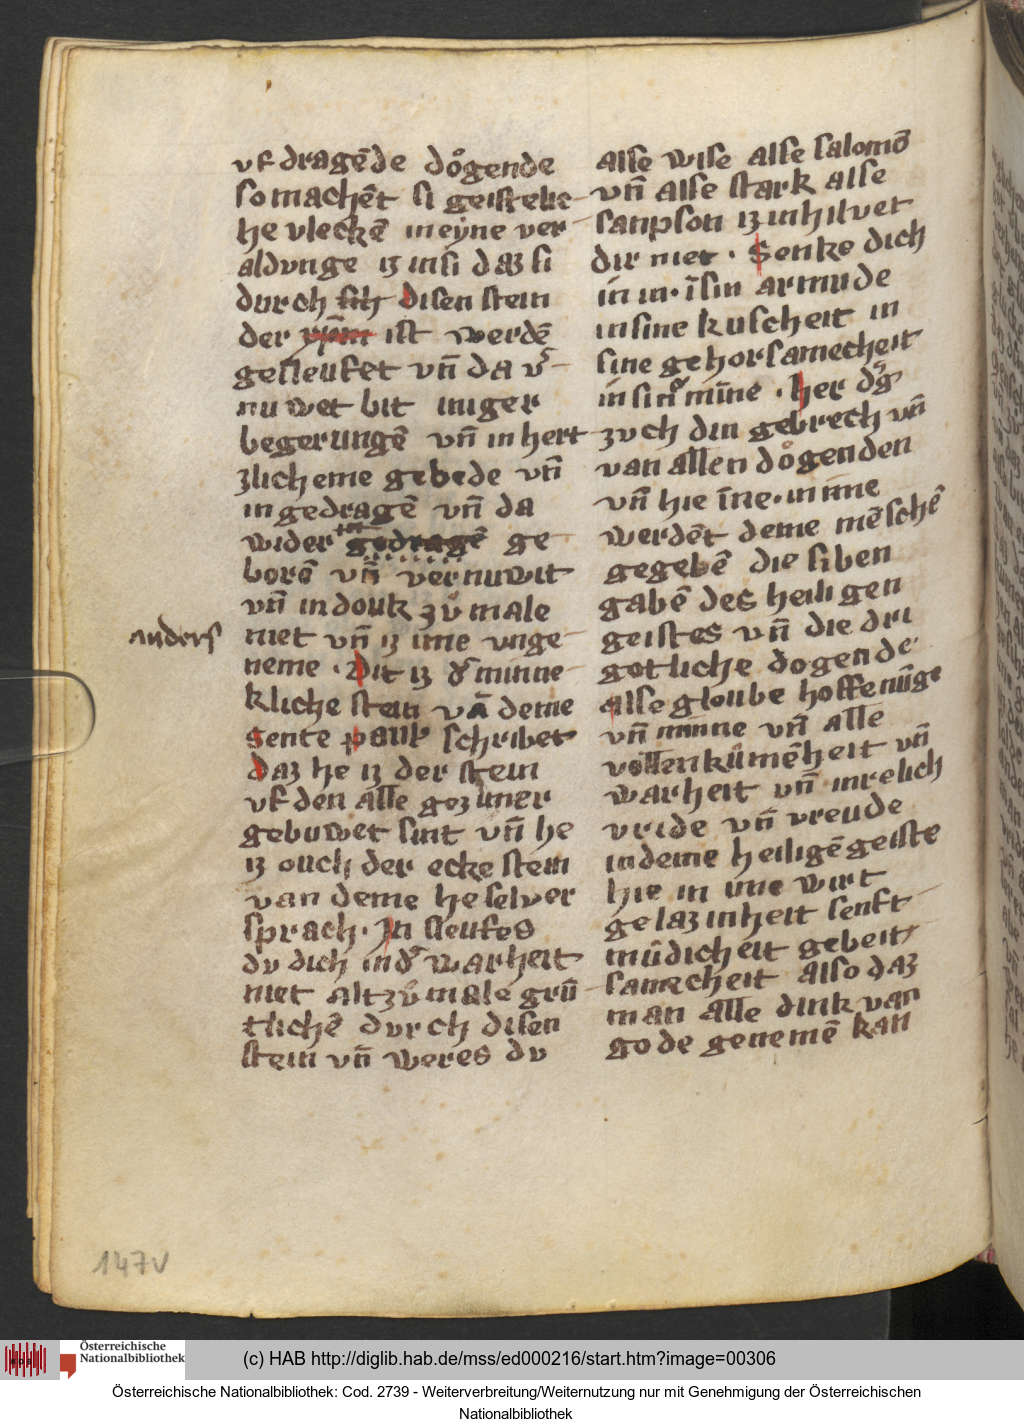 vf dragēde doͤgende
so machēt si geistelic-
he vleckē in eyne ver-
aldvnge iz in si daz si
durch sich disen stein
der xp̄m ist werdē
gesleufet vn̄ da v͛-
nuwet bit inniger
begerungē vn̄ in hert-
zlicheme gebede vn̄
in gedragē vn̄ da
wider gedragē ge-
borē vn̄ vernuwit
vn̄ in douk zuͦ male
anders
niet vn̄ iz ime vnge-
neme · Dit iz d͛ minne-
kliche stein vā deme
sente paulꝰ schribet
daz he iz der stein
vf den alle gezimer
gebuwet sint vn̄ he
iz ouch der ecke stein
van deme he selver
sprach · In sleufes
dv dich in d͛ warheit
niet altzuͦ male grū-
tlichē dvrch disen
stein vn̄ weres dv
alse wise alse salomō
vn̄ alse stark alse
sanpson iz inhilvet
dir niet · Senke dich
in in · ī sin armude
in sine kuscheit in
sine gehorsamecheit
in sin͛ mīne · her doͤg
zvch din gebrech vn̄
van allen doͤgenden
vn̄ hie īne · in ime
werdēt deme mēschē
gegebē die siben
gabē des heiligen
geistes vn̄ die dri
gotliche dogende
alse gloube hoffenūge
vn̄ minne vn̄ alle
vollenkuͦmēheit vn̄
warheit vn̄ inrelich
vride vn̄ vreude
in deme heiligē geiste
hie in ime wirt
gelazinheit senft-
mūdicheit gebeit-
samecheit also daz
man alle dink van
gode genemē kan
147v
Österreichische
Nationalbibliothek
(c) HAB http://diglib.hab.de/mss/ed000216/start.htm?image=00306
Österreichische Nationalbibliothek: Cod. 2739 - Weiterverbreitung/Weiternutzung nur mit Genehmigung der Österreichischen
Nationalbibliothek